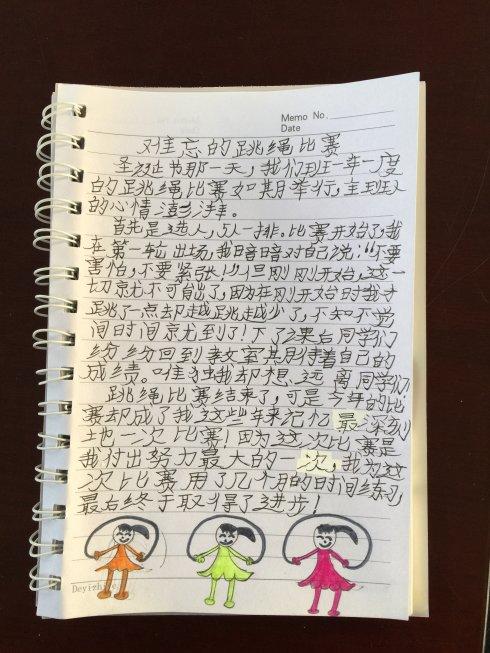 Memo No.
Date
难忘的跳绳比赛
圣诞节那一天，我们班一年一度
的跳绳比赛如期举行，全班人
的心情澎湃。
首先是选人，5人一排。比赛开始了，我
在第一轮出场，我暗暗对自己说：“不要
害怕，不要紧张！”但刚刚开始，这一
切就不可能了，因为在刚开始时我才
跳了一点却越跳越少了，不知不觉
间时间就到了！下了课后同学们
纷纷回到教室期待着自己的
成绩。唯独我却想远离同学们
跳绳比赛结束了，可是今年的比
赛却成了我这些年来记忆最深刻
地一次比赛！因为这次比赛是
我付出努力最大的一次，我为这
次比赛用了几个月的时间练习，
最后终于取得了进步！